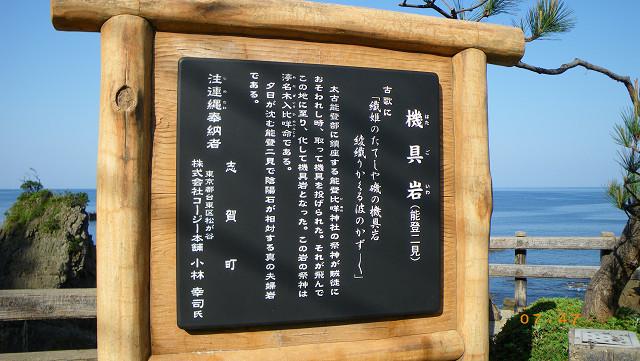 機具岩（能登二見）
はたごいわ
古歌に
「織姫のたてしや磯の機具岩
綾織りかくる波のかずかず」
太古能登部に鎮座する能登比咩神社の祭神が賊徒に
おそわれし時、取って機具を投げられた。それが飛んで
この地に至り、化して機具岩となった。この岩の祭神は
渟名木入比咩命である。
夕日が沈む能登二見で陰陽石が相対する真の夫婦岩
である。
志賀町
注連縄奉納者
しめなわ
東京都台東区松が谷
株式会社コージー本舗 小林幸司氏
07 4 7